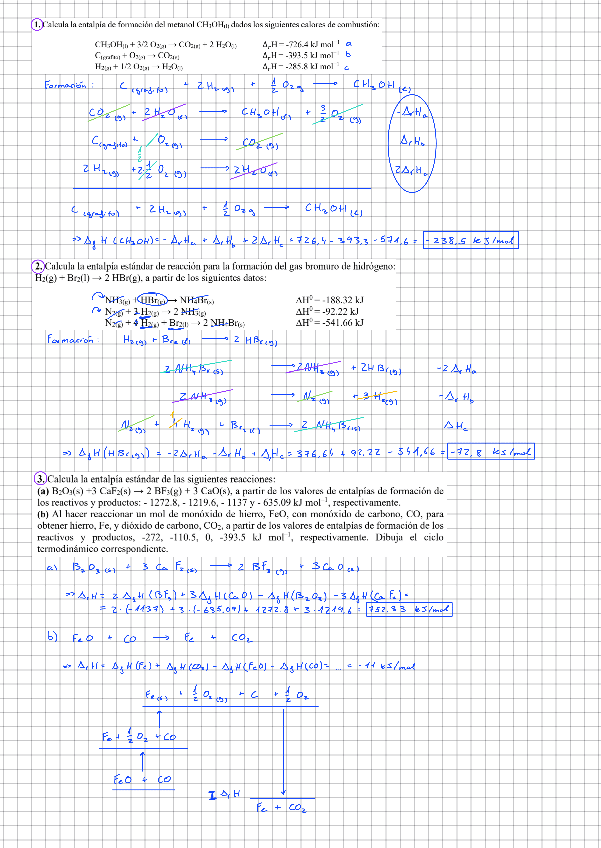 1. Calcula la entalpía de formación del metanol CH3OH(l) dados los siguientes calores de combustión:
CH3OH(l) + 3/2 O2(g) → CO2(g) + 2 H2O(l) ΔrH = -726.4 kJ mol⁻¹ a
C(grafito) + O2(g) → CO2(g) ΔrH = -393.5 kJ mol⁻¹ b
H2(g) + 1/2 O2(g) → H2O(l) ΔrH = -285.8 kJ mol⁻¹ c
Formación: C(grafito) + 2 H2(g) + 1/2 O2 g → CH3OH(l)
CO2(g) + 2 H2O(l) → CH3OH(l) + 3/2 O2(g) -ΔrHa
C(grafito) + O2(g) → CO2(g) ΔrHb
2 H2(g) + 2·1/2 O2(g) → 2 H2O(l) 2ΔrHc
C(grafito) + 2 H2(g) + 1/2 O2 g → CH3OH(l)
⇒ ΔfH (CH3OH) = -ΔrHa + ΔrHb + 2ΔrHc = 726,4 - 393,3 - 571,6 = -238,5 kJ/mol
2. Calcula la entalpía estándar de reacción para la formación del gas bromuro de hidrógeno:
H2(g) + Br2(l) → 2 HBr(g), a partir de los siguientes datos:
NH3(g) + HBr(g) → NH4Br(s) ΔH⁰ = -188.32 kJ
N2(g) + 3 H2(g) → 2 NH3(g) ΔH⁰ = -92.22 kJ
N2(g) + 4 H2(g) + Br2(l) → 2 NH4Br(s) ΔH⁰ = -541.66 kJ
Formación H2(g) + Br2(l) → 2 HBr(g)
2 NH4Br(s) → 2 NH3(g) + 2HBr(g) -2ΔrHa
2 NH3(g) → N2(g) + 3 H2(g) -ΔrHb
N2(g) + 4 H2(g) + Br2(l) → 2 NH4Br(s) ΔHc
⇒ ΔfH(HBr(g)) = -2ΔrHa - ΔrHb + ΔrHc = 376,64 + 92,22 - 541,66 = -72,8 kJ/mol
3. Calcula la entalpía estándar de las siguientes reacciones:
(a) B2O3(s) +3 CaF2(s) → 2 BF3(g) + 3 CaO(s), a partir de los valores de entalpías de formación de
los reactivos y productos: - 1272.8, - 1219.6, - 1137 y - 635.09 kJ mol⁻¹, respectivamente.
(b) Al hacer reaccionar un mol de monóxido de hierro, FeO, con monóxido de carbono, CO, para
obtener hierro, Fe, y dióxido de carbono, CO2, a partir de los valores de entalpías de formación de los
reactivos y productos, -272, -110.5, 0, -393.5 kJ mol⁻¹, respectivamente. Dibuja el ciclo
termodinámico correspondiente.
a) B2O3(s) + 3 CaF2(s) → 2 BF3(g) + 3 CaO(s)
⇒ ΔrH = 2 ΔfH(BF3) + 3ΔfH(CaO) - ΔfH(B2O3) - 3ΔfH(CaF2) =
= 2·(-1137) + 3·(-635,09) + 1272,8 + 3·1219,6 = 752.33 kJ/mol
b) FeO + CO → Fe + CO2
⇒ ΔrH = ΔfH(Fe) + ΔfH(CO2) - ΔfH(FeO) - ΔfH(CO) = ... = -11 kJ/mol
Fe(s) + 1/2 O2(g) + C + 1/2 O2
Fe + 1/2 O2 + CO
FeO + CO
ΔrH
Fe + CO2